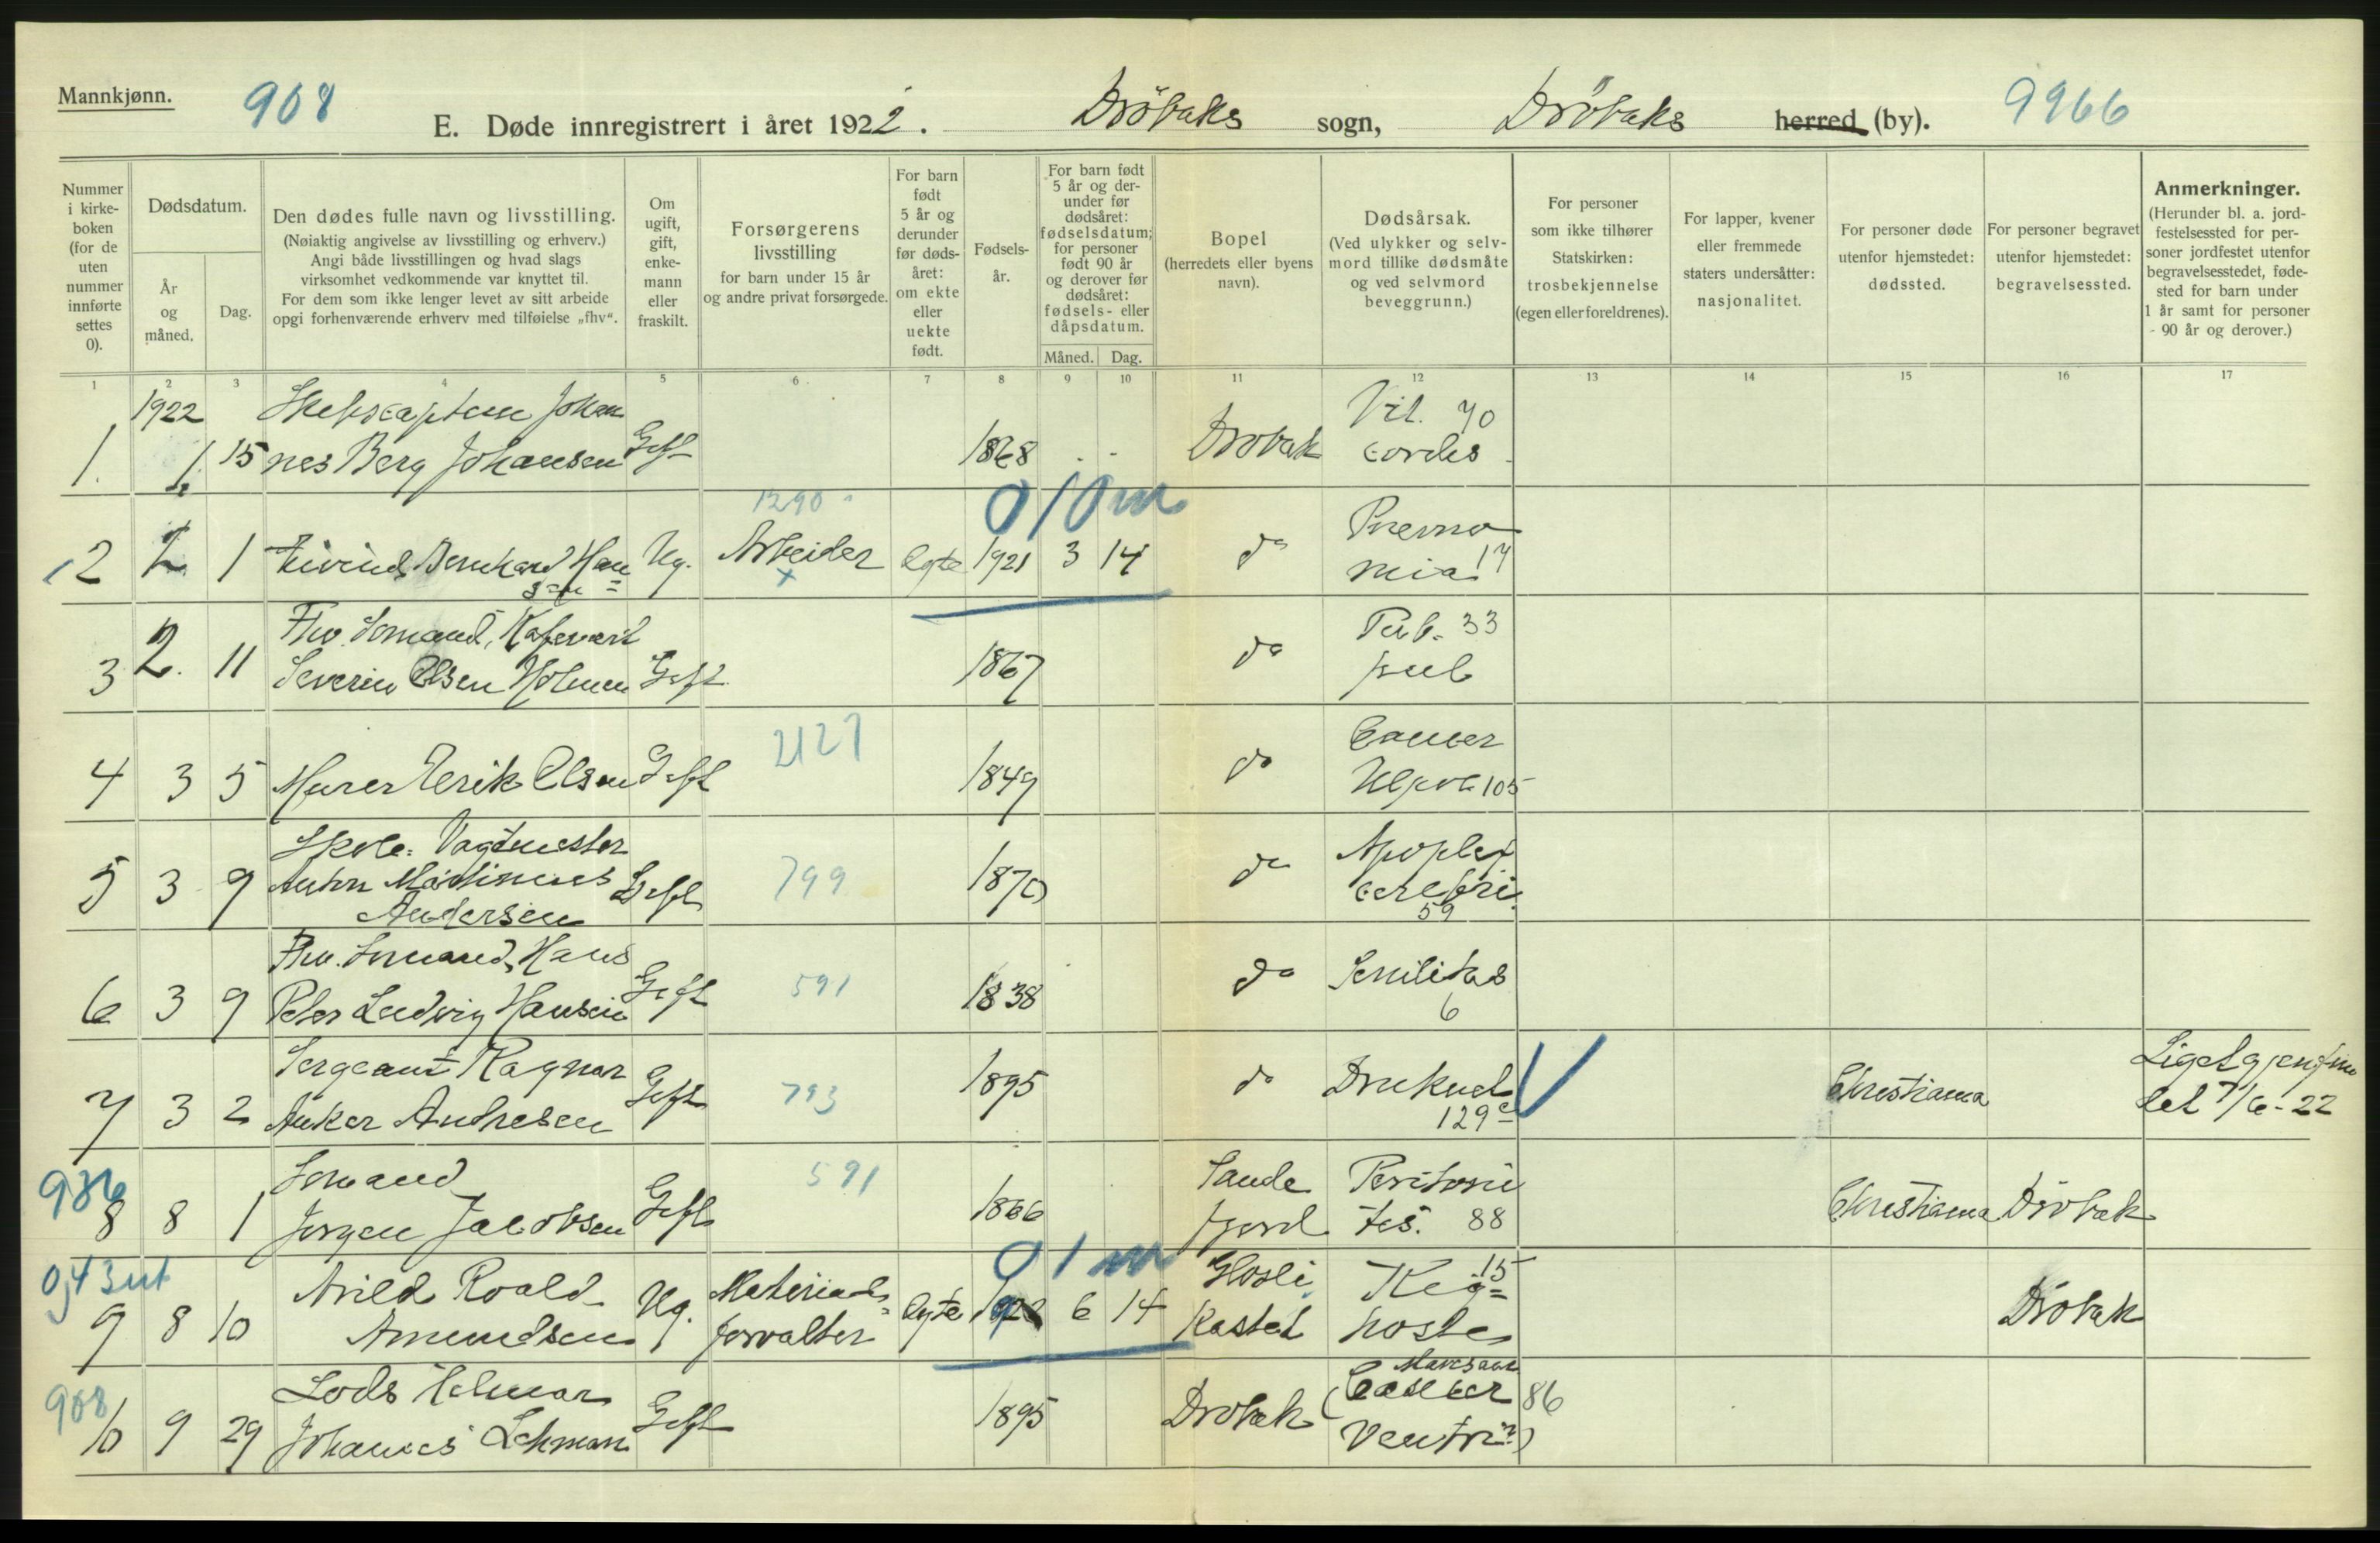 Mannkjønn.
908
E. Døde innregistrert i året 1922.
Drøbaks sogn,
Drøbaks herred (by).
9966
Nummer i kirke- boken (for de uten nummer innførte settes 0).
Dødsdatum.
År og måned.
Dag.
Den dødes fulle navn og livsstilling.
(Nøiaktig angivelse av livsstilling og erhverv.)
Angi både livsstillingen og hvad slags
virksomhet vedkommende var knyttet til.
For dem som ikke lenger levet av sitt arbeide
opgi forhenværende erhverv med tilføielse „fhv“.
Om ugift, gift, enke- mann eller fraskilt.
Forsørgerens livsstilling
for barn under 15 år
og andre privat forsørgede.
For barn født 5 år og derunder før døds- året: om ekte eller uekte født.
Fødsels- år.
For barn født 5 år og der- under før dødsåret: fødselsdatum; for personer født 90 år og derover før dødsåret: fødsels- eller dåpsdatum.
Måned.
Dag.
Bopel
(herredets eller byens navn).
Dødsårsak.
(Ved ulykker og selv- mord tillike dødsmåte og ved selvmord beveggrunn.)
For personer som ikke tilhører Statskirken: trosbekjennelse (egen eller foreldrenes).
For lapper, kvener eller fremmede staters undersåtter: nasjonalitet.
For personer døde utenfor hjemstedet: dødssted.
For personer begravet utenfor hjemstedet: begravelsessted.
Anmerkninger.
(Herunder bl. a. jord- festelsessted for per- soner jordfestet utenfor begravelsesstedet, føde- sted for barn under 1 år samt for personer - 90 år og derover.)
1 2 3 4 5 6 7 8 9 10 11 12 13 14 15 16 17
1922 Skibscaptein Johan Vit. 70
1. 1. 15 nes Berg Johansen Gift 1868 Drøbak cordis
1290 010 m Pnevmo
2 2 1 Eivind Bernhard Han Ug. Arbeider Egte 1921 3 14 do nia 17
sen
Fhv. Sømand, Kafevert Tub. 33
3 2. 11 Severin Olsen Holmen Gift 1867 do pul
2127 Cancer
4 3 5 Murer Erik Olsen Gift 1849 do 105
Skole. Vagtmester Apoplex
5 3 9 Anton Martinius Gift 799 1870 do cerebri
Andersen 59
Fhv. Sømand, Hans Senilitas
6 3 9 Peter Ludvig Hansen Gift 591 1838 do 6
Sergeant Ragnar Ligetgjenfun
7 3 2 Anker Andresen Gift 793 1895 do Druknet 129c Christiania det 7/6-22
936 Sømand 591 Sande Peritoni
8 8 1 Jørgen Jacobsen Gift 1866 fjord tis. 88 Christiania Drøbak
Arild Roald Materiale 01 m Kig= 15
9 8 10 Amundsen Ug. forvalter Egte 1922 6 14 Kastet hoste Drøbak
908 Lods Helmar Mavesaar
10 9 29 Johannes Lehmann Gift 1895 Drøbak (Cancer 86
Ventri)